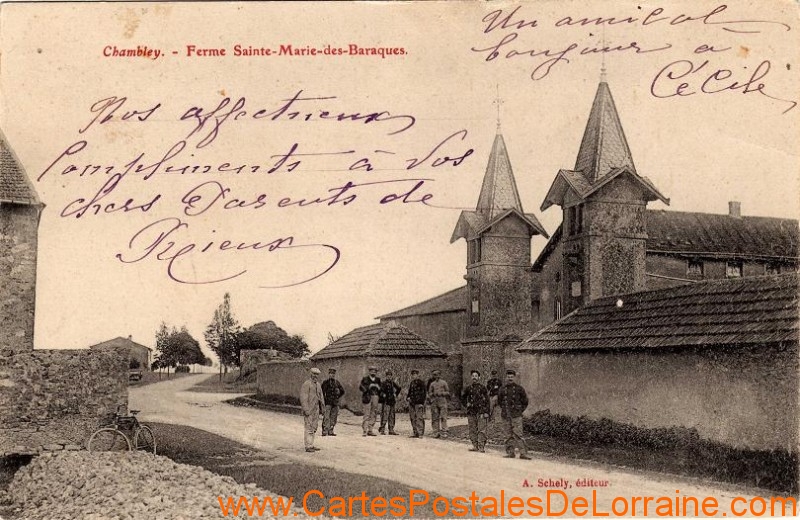 Chambley. - Ferme Sainte-Marie-des-Baraques.
Un amical
bonjour à
Cécile
Nos affectueux
Compliments à vos
chers Parents de
Prieux
A. Schely, éditeur.
www.CartesPostalesDeLorraine.com